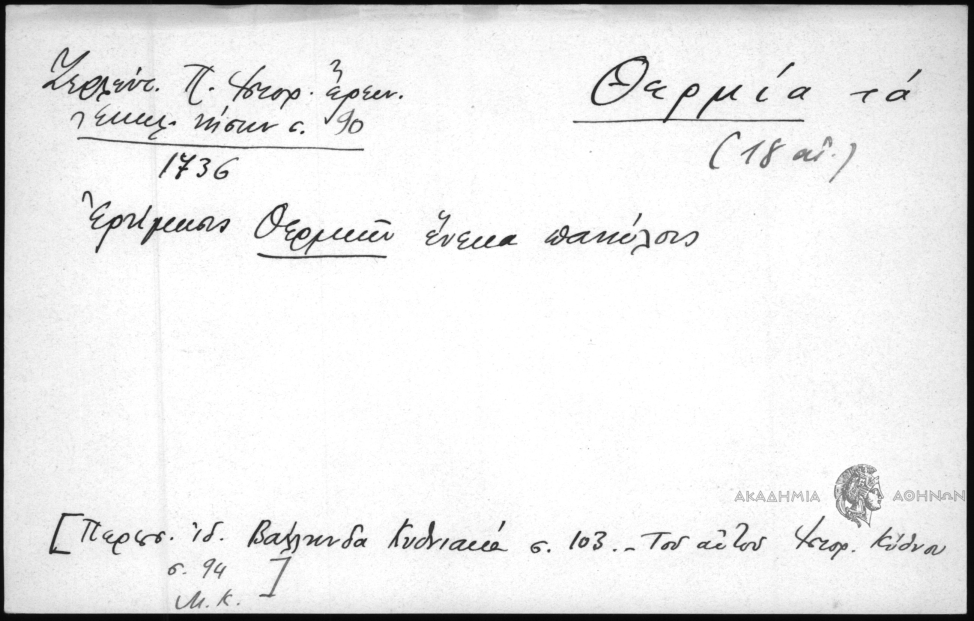 Ζερλέντ. Π. Ἱστορ. ἔρευν.
ἐκκλ. νήσων σ. 90
1736
Θερμία τά
(18 αἰ.)
Ἐρήμωσις Θερμιῶν ἕνεκα πανώλους
ΑΚΑΔΗΜΙΑ ΑΘΗΝΩΝ
[Περισσ. ἰδ. Βαλληνδα Κυθνιακά σ. 103 _ Του αὐτου Ἱστορ. Κύθνου
σ. 94 ]
Μ. Κ.